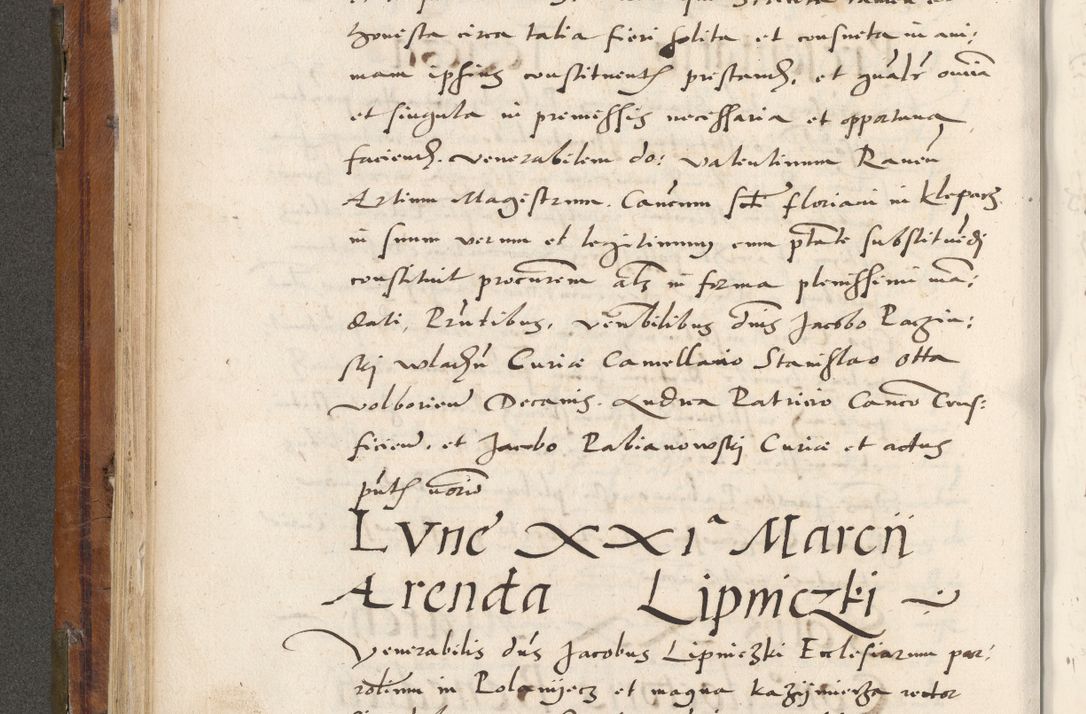 honesta circa talia fieri solita et consueta in ani:
mam ipsius constituentis prestand, et gnaliter omnia
et singula in premissis necessaria et opportuna
faciend. Venerabilem do: Valentinum Raven
Artium Magistrum. Cancum scti Floriani in Kleparz
in suum verum et legitimum cum ptate substituedi
constituit procurem als in forma plenissimi ma:
dati, Pntibus, venbilibus dnis Jacobo Pagin:
ski wlachu Curie Camellario Stanislao Otta
volborien Decanis. Andrea Patricio Canco Crus:
ficien. et Jacobo Rabianowskj Curie et actus
pntis norio
Lvne XXIa Marcii
Arenda Lipniczki
Venerabilis dns Jacobus Lipniczki Ecclesiarum par:
rolium in Polanyecz et magna Kazijmierza rector